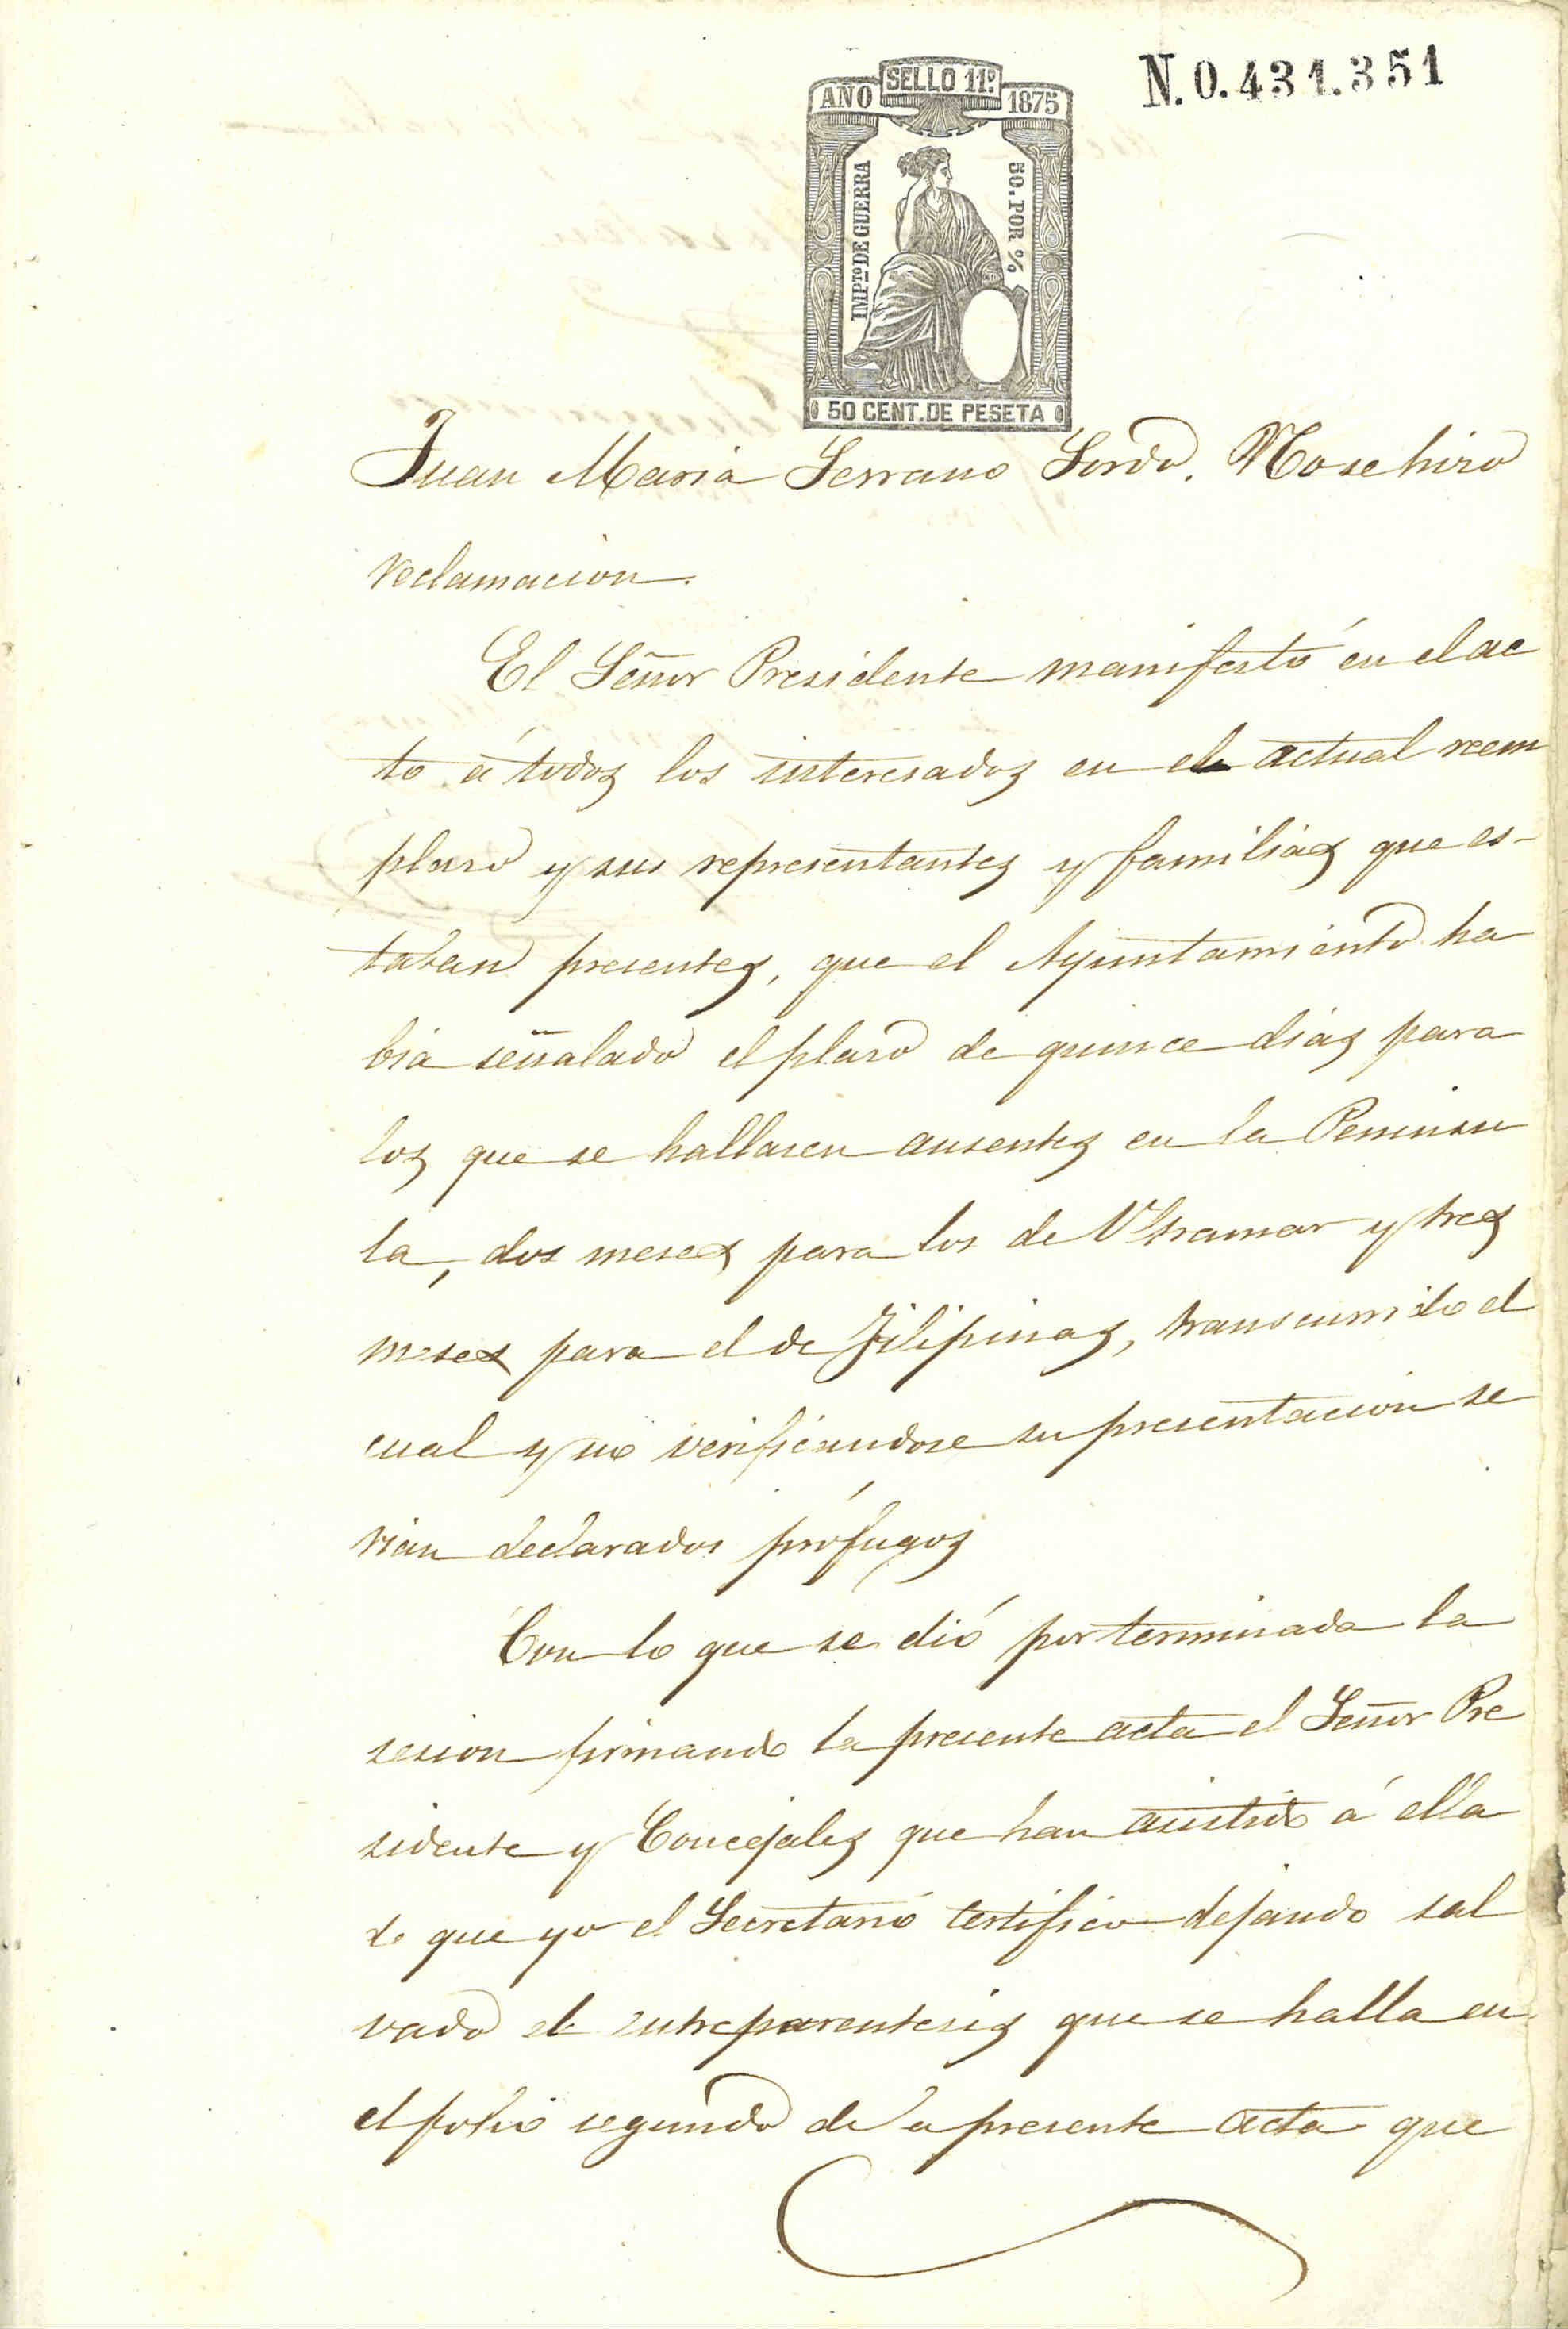 N. 0.431.351
AÑO SELLO 11º 1875
IMPTO DE GUERRA
50. POR %
50 CENT. DE PESETA
Juan Maria Serrano Sordo. No se hizo
reclamacion.
El Señor Presidente manifestó en el ac
to á todos los interesados en el actual reem
plazo y sus representantes y familias que es-
taban presentes, que el Ayuntamiento ha
bia señalado el plazo de quince dias para
los que se hallasen ausentes en la Peninsu
la, dos meses para los de Ultramar y tres
meses para el de Filipinas, transcurrido el
cual y no verificandose su presentacion se
rian declarados prófugos
Con lo que se dió por terminada la
sesion firmando la presente acta el Señor Pre
sidente y Concejales que han asistido á ella
de que yo el Secretario certifico dejando sal
vado el entreparentesis que se halla en
el folio segundo de la presente acta que